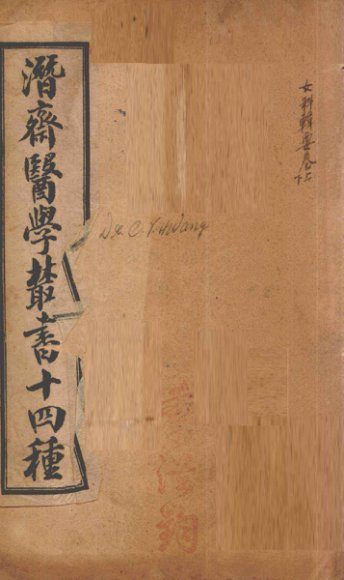 女科輯要卷上
潛齋醫學叢書十四種
Dr. C. T. Wang